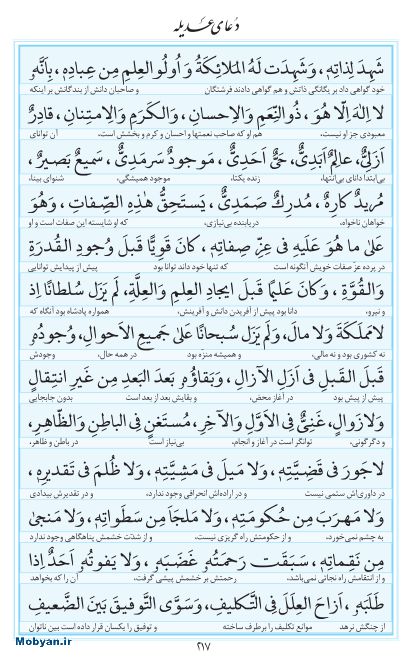 دعای عدیله
شَهِدَ لِذاتِهِ، وَشَهِدَت لَهُ المَلائِکَةُ وَ اُولُوالعِلمِ مِن عِبادِهِ، بِاَنَّهُ
خود گواهی داد بر یگانگی ذاتش و هم گواهی دادند فرشتگان و صاحبان دانش از بندگانش بر اینکه
لا اِلهَ اِلّا هُوَ، ذُوالنِّعَمِ وَالاِحسانِ، وَالکَرَمِ وَالاِمتِنانِ، قادِرٌ
معبودی جز او نیست، هم او که صاحب نعمتها و احسان و کرم و بخشش است، آن توانای
اَزَلِیٌّ، عالِمٌ اَبَدِیٌّ، حَیٌّ اَحَدِیٌّ، مَوجودٌ سَرمَدِیٌّ، سَمیعٌ بَصیرٌ،
بی‌ابتدا دانای بی‌انتها، زنده یکتا، موجود همیشگی، شنوای بینا،
مُریدٌ کارِهٌ، مُدرِكٌ صَمَدِیٌّ، یَستَحِقُّ هٰذِهِ الصِّفاتِ، وَهُوَ
خواهان ناخواه، دریابنده بی‌نیازی، که او شایسته این صفات است و او
عَلیٰ ما هُوَ عَلَیهِ فی عِزِّ صِفاتِهِ، کانَ قَوِیًّا قَبلَ وُجودِ القُدرَةِ
در پرده عزّ صفات خویش آنگونه است که تنها خود داند توانا بود پیش از پیدایش توانایی
وَالقُوَّةِ، وَکانَ عَلیمًا قَبلَ ایجادِ العِلمِ وَالعِلَّةِ، لَم یَزَل سُلطانًا اِذ
و نیرو، دانا بود پیش از آفریدن دانش و آفرینش، همواره پادشاه بود آنگاه که
لامَملَکَةَ وَلا مالَ، وَلَم یَزَل سُبحانًا عَلیٰ جَمیعِ الاَحوالِ، وُجودُهُ
نه کشوری بود و نه مالی، و همیشه منزه بود در همه حال، وجودش
قَبلَ القَبلِ فی اَزَلِ الآزالِ، وَبَقاؤُهُ بَعدَ البَعدِ مِن غَیرِ انتِقالٍ
پیش از پیش بود در آغاز محض، و بقایش بعد از بعد است بدون جابجایی
وَلازَوالٍ، غَنِیٌّ فِی الاَوَّلِ وَالآخِرِ، مُستَغنٍ فِی الباطِنِ وَالظّاهِرِ،
و دگرگونی، توانگر است در آغاز و انجام، بی‌نیاز است در باطن و ظاهر،
لاجَورَ فی قَضِیَّتِهِ، وَلا مَیلَ فی مَشِیَّتِهِ، وَلا ظُلمَ فی تَقدیرِهِ،
در داوری‌اش ستمی نیست و در اراده‌اش انحرافی وجود ندارد، و در تقدیرش بیدادی
وَلا مَهرَبَ مِن حُکومَتِهِ، وَلا مَلجَاَ مِن سَطَواتِهِ، وَلا مَنجیٰ
به چشم نمی‌خورد، و از حکومتش راه گریزی نیست، و از شدّت خشمش پناهگاهی وجود ندارد
مِن نَقِماتِهِ، سَبَقَت رَحمَتُهُ غَضَبَهُ، وَلا یَفوتُهُ اَحَدٌ اِذا
و از انتقامش راه نجاتی نمی‌باشد، رحمتش بر خشمش پیشی گرفت، آن را که بخواهد
طَلَبَهُ، اَزاحَ العِلَلَ فِی التَّکلیفِ، وَسَوَّی التَّوفیقَ بَینَ الضَّعیفِ
از چنگش نرهد موانع تکلیف را برطرف ساخته و توفیق را یکسان قرار داده است بین ناتوان
Mobyan.ir
۲۱۷